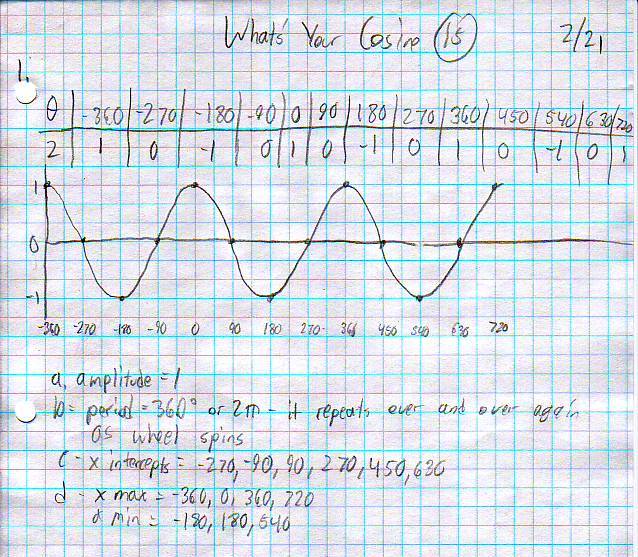 What's Your Cosine 15 2/21
1.
θ -360 -270 -180 -90 0 90 180 270 360 450 540 630 720
2 1 0 -1 0 1 0 -1 0 1 0 -1 0 1
1
0
-1
-360 -270 -180 -90 0 90 180 270 360 450 540 630 720
a. amplitude = 1
b = period = 360° or 2π - it repeats over and over again
as wheel spins
c - x intercepts = -270, -90, 90, 270, 450, 630
d - x max = -360, 0, 360, 720
x min = -180, 180, 540